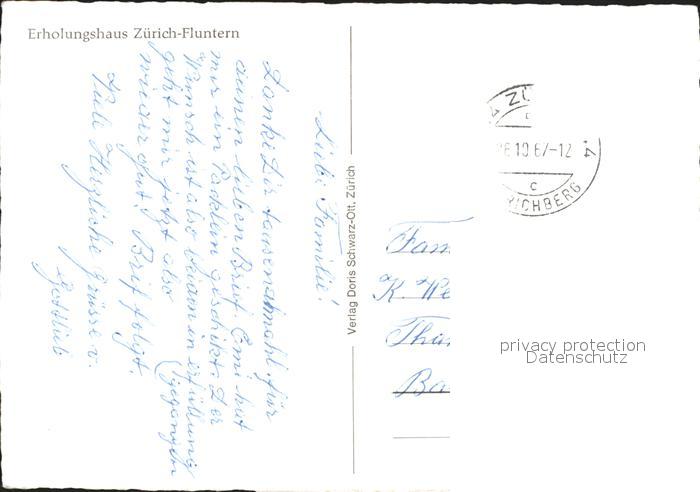 Erholungshaus Zürich-Fluntern
Liebe Familie!
Danke Dir tausendmahl für
deinen lieben Brief. Emi hat
mir ein Päcklein geschikt. Der
Wunsch ist also beiden in erfüllung
(gegangen
geht mir jetzt also
wieder gut! Brif folgt.
Viele Herzliche Grüsse v.
Gottlieb
Verlag Doris Schwarz-Ott, Zürich
26.10.67-12
4
c
RICHBERG
4 ZÜ
Fam
K. We
Thu
Ba
privacy protection
Datenschutz